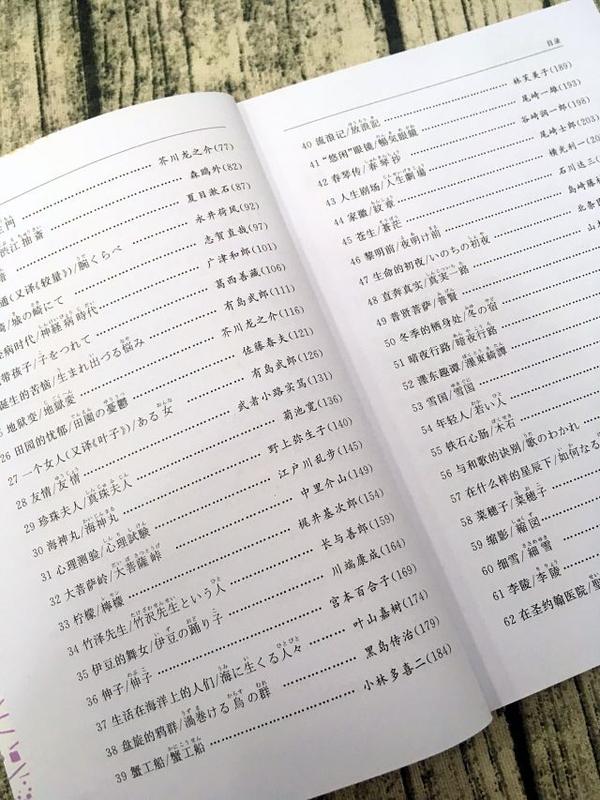 目录
芥川龙之介(77)
江抽斎 森鸥外(82)
夏目漱石(87)
(又译《较量》)/腕くらべ 永井荷风(92)
/城の崎にて 志贺直哉(97)
病时代/神経病時代 广津和郎(101)
带孩子/子をつれて 葛西善藏(106)
诞生的苦恼/生まれ出づる悩み 有岛武郎(111)
地狱变/地獄変 芥川龙之介(116)
26 田园的忧郁/田園の憂鬱 佐藤春夫(121)
27 一个女人(又译《叶子》)/ある女 有岛武郎(126)
28 友情/友情 武者小路实笃(131)
29 珍珠夫人/真珠夫人 菊池宽(136)
30 海神丸/海神丸 野上弥生子(140)
31 心理测验/心理試験 江户川乱步(145)
32 大菩萨岭/大菩薩峠 中里介山(149)
33 柠檬/檸檬 梶井基次郎(154)
34 竹泽先生/竹沢先生という人 长与善郎(159)
35 伊豆的舞女/伊豆の踊り子 川端康成(164)
36 伸子/伸子 宫本百合子(169)
37 生活在海洋上的人们/海に生くる人々 叶山嘉树(174)
38 盘旋的鸦群/渦巻ける烏の群 黑岛传治(179)
39 蟹工船/蟹工船 小林多喜二(184)
40 流浪记/放浪記 林芙美子(189)
41 “悠闲”眼镜/暢気眼鏡 尾崎一雄(193)
42 春琴传/春琴抄 谷崎润一郎(198)
43 人生剧场/人生劇場 尾崎士郎(203)
44 家徽/紋章 横光利一(20
45 苍生/蒼茫 石川达三(
46 黎明前/夜明け前 岛崎藤
47 生命的初夜/いのちの初夜 北条
48 直奔真实/真実一路 山
49 普贤菩萨/普賢
50 冬季的栖身处/冬の宿
51 暗夜行路/暗夜行路
52 濹东趣谭/濹東綺譚
53 雪国/雪国
54 年轻人/若い人
55 铁石心肠/木石
56 与和歌的诀别/歌のわかれ
57 在什么样的星辰下/如何なる
58 菜穗子/菜穂子
59 缩影/縮図
60 细雪/細雪
61 李陵/李陵
62 在圣约翰医院/聖